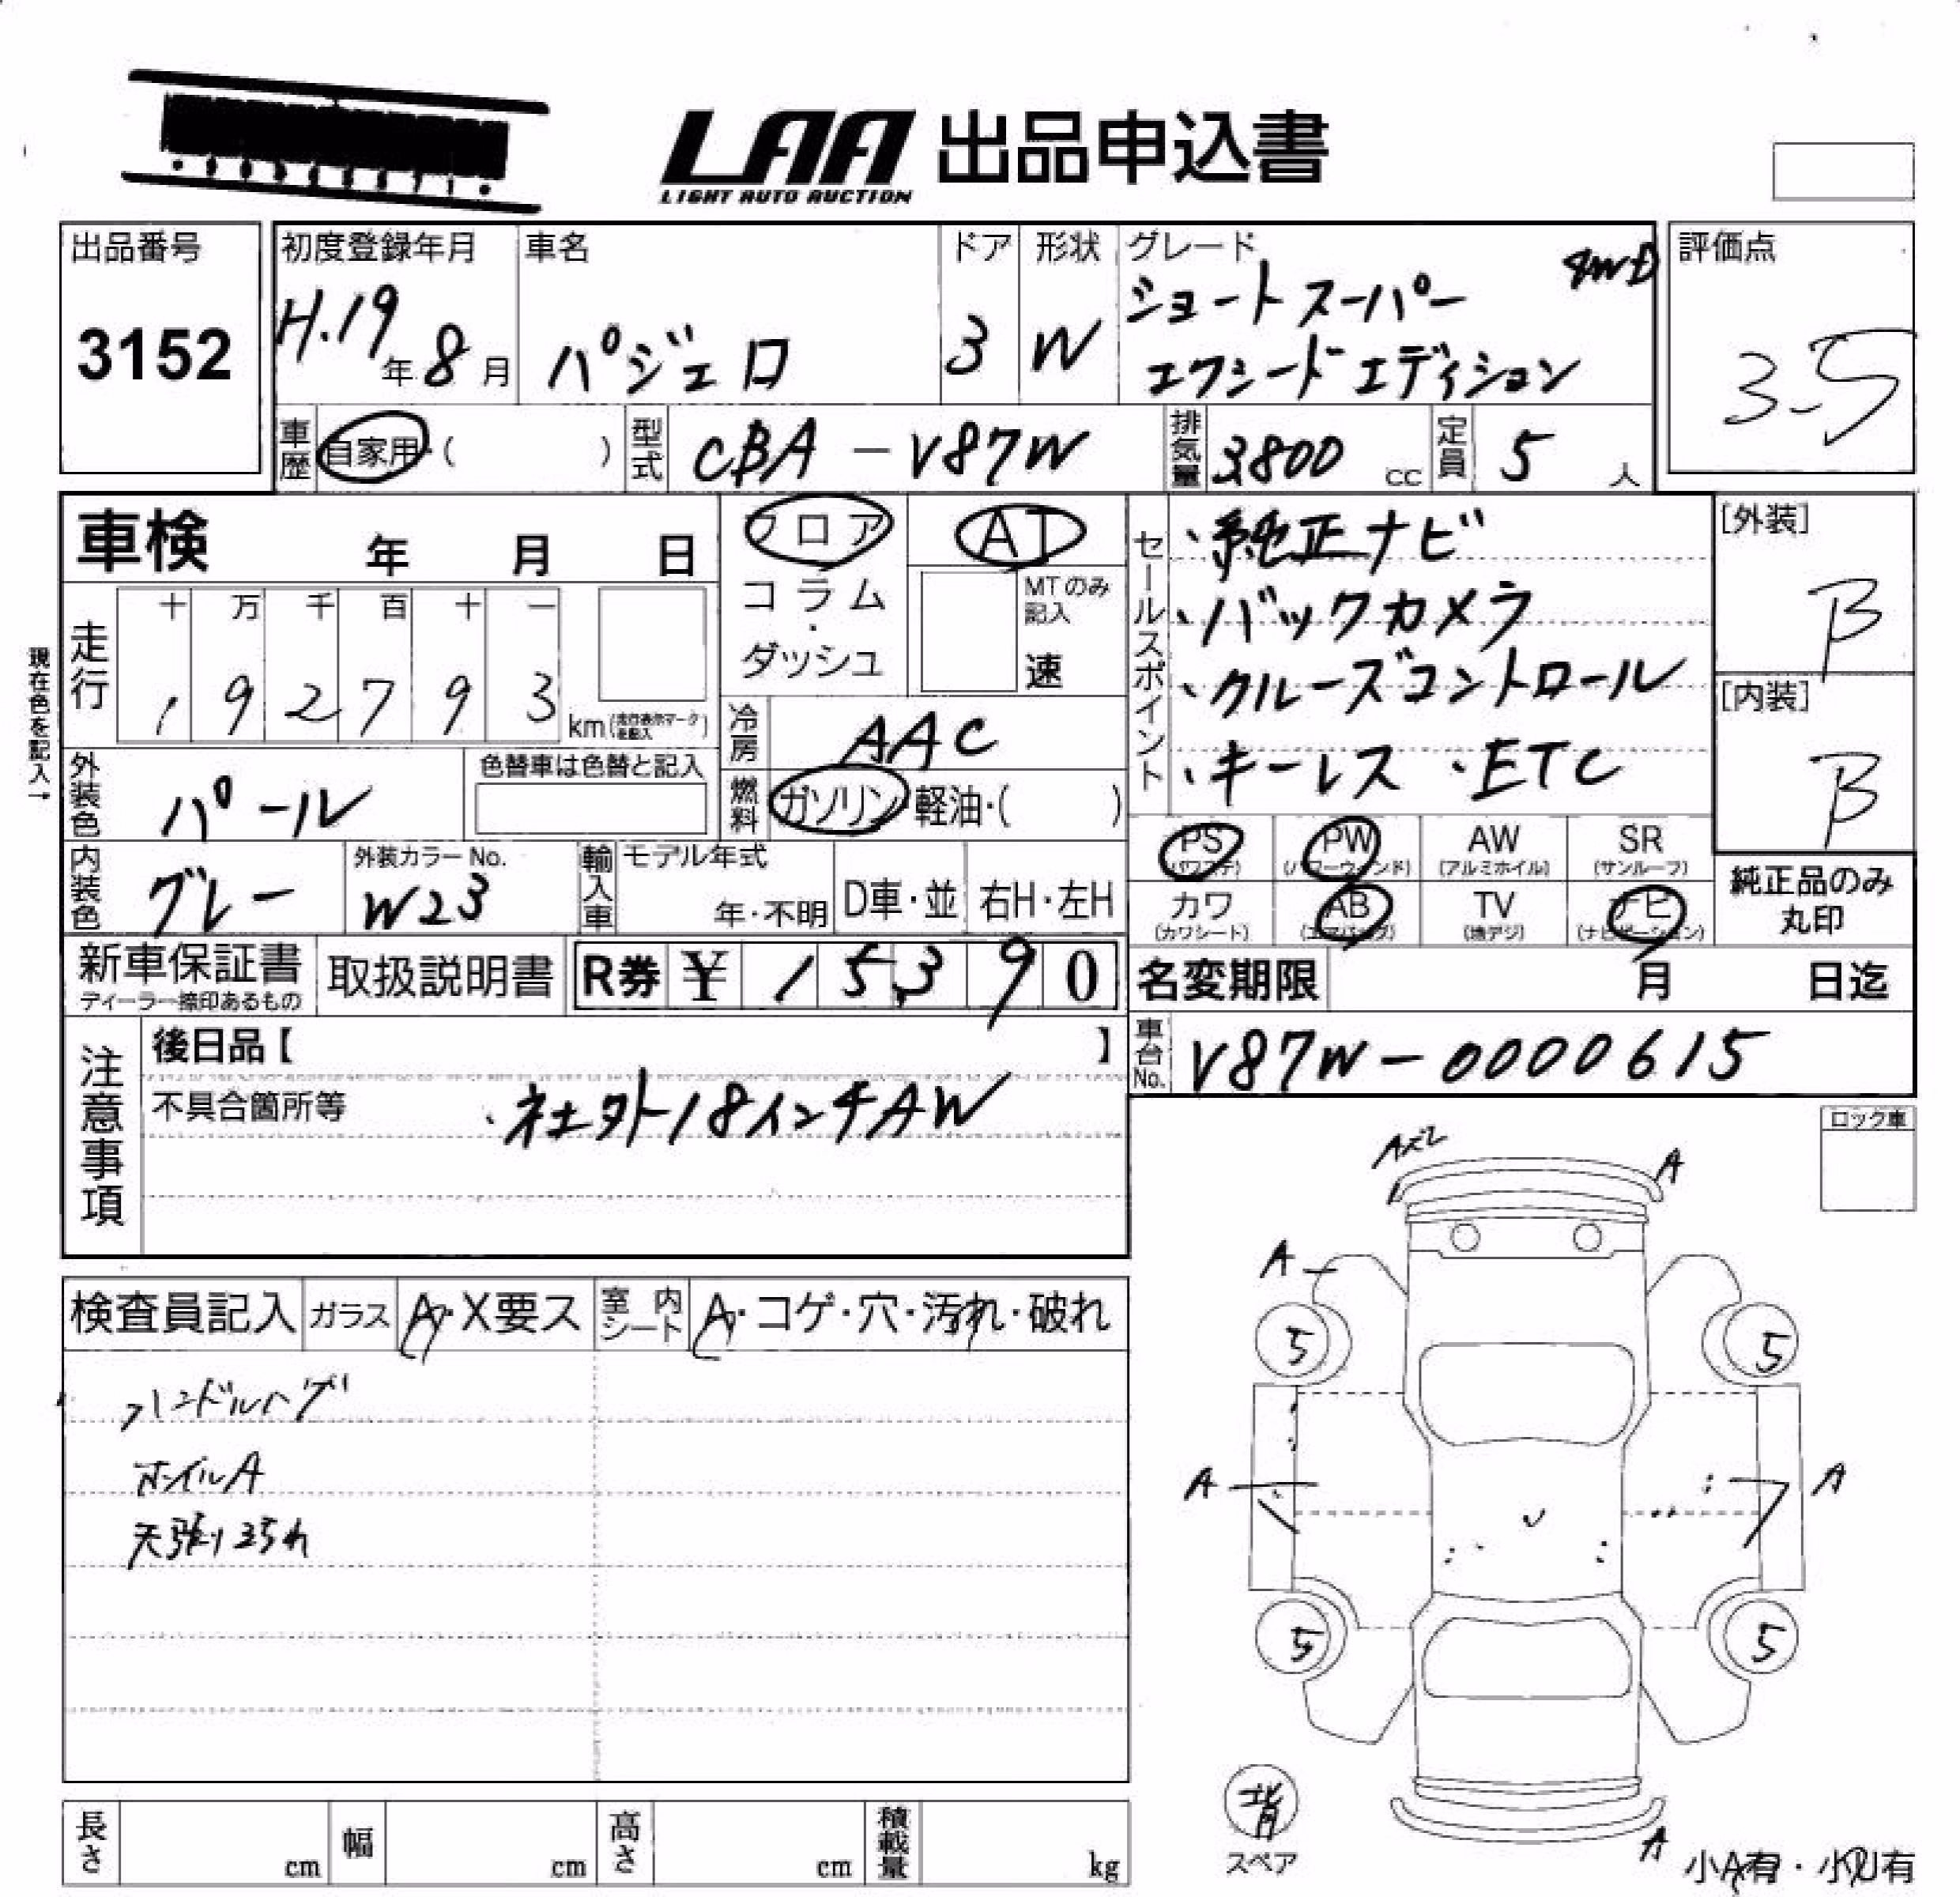 LAA 出品申込書
LIGHT AUTO AUCTION
出品番号
3152
初度登録年月
H.19年8月
車名
パジェロ
ドア
3
形状
W
グレード
ショート スーパー
エクシード エディション
評価点
3.5
車歴
自家用・( )
型式
CBA-V87W
排気量
3800 cc
定員
5 人
車検 年 月 日
フロア
コラム
・
ダッシュ
AT
MTのみ
記入
速
セールスポイント
・純正ナビ
・バックカメラ
・クルーズコントロール
・キーレス ・ETC
[外装]
B
[内装]
B
現在色を記入→
走行
十 万 千 百 十 一
1 9 2 7 9 3
km(走行表示マークを記入)
冷房
AAC
燃料
ガソリン・軽油・( )
外装色
パール
色替車は色替と記入
内装色
グレー
外装カラーNo.
W23
輸入車
モデル年式
年・不明
D車・並
右H・左H
PS PW AW SR
(パワステ) (パワーウィンド) (アルミホイル) (サンルーフ)
カワ AB TV ナビ
(カワシート) (エアバッグ) (地デジ) (ナビゲーション)
純正品のみ
丸印
新車保証書
ディーラー捺印あるもの
取扱説明書
R券 ¥ 1 5 3 9 0
名変期限 月 日迄
車台No.
V87W-0000615
注意事項
後日品【 】
不具合箇所等
・社外18インチAW
ロック車
検査員記入
ガラス
A・X要ス
室内シート
A・コゲ・穴・汚れ・破れ
ハンドルハゲ
ホイルA
天張りよごれ
Aズレ
A
A
5
5
A
A
5
5
背
スペア
A
小A有・小U有
長さ cm
幅 cm
高さ cm
積載量 kg